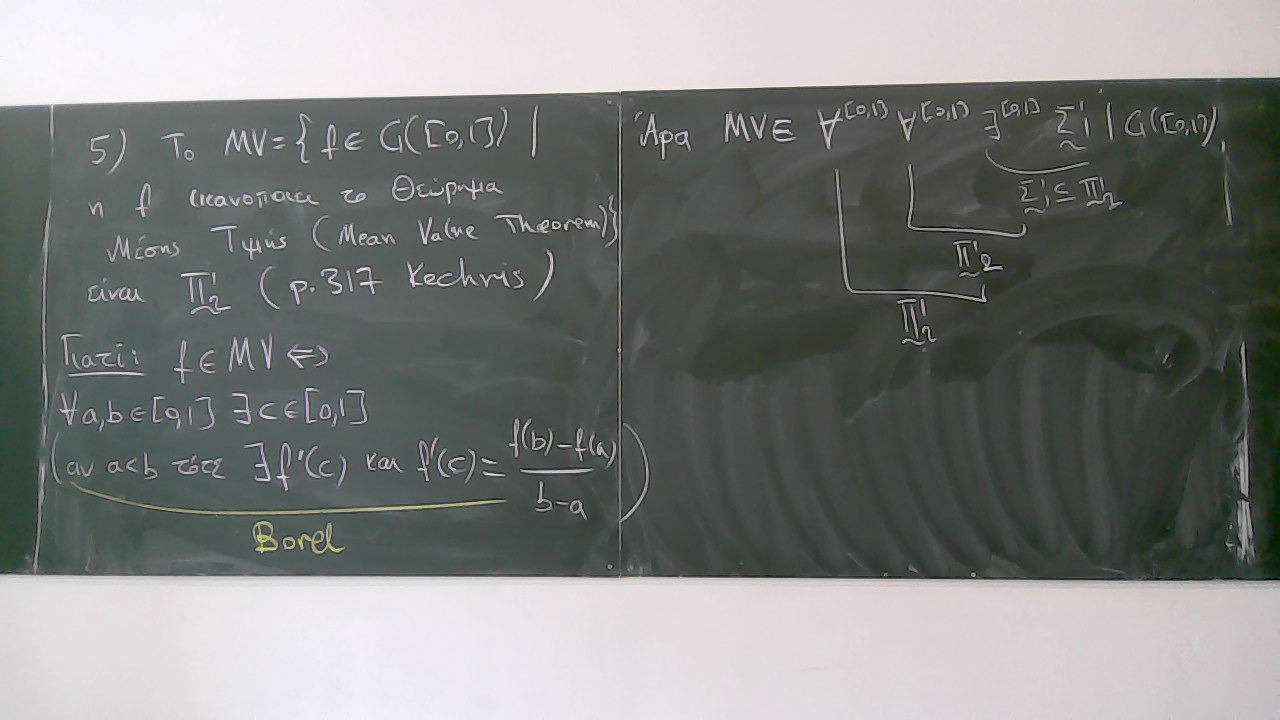 5) Το MV = { f ∈ C([0,1]) |
η f ικανοποιει το Θεώρημα
Μέσης Τιμής (Mean Value Theorem)}
είναι Π̰¹₂ (p.317 Kechris)
Γιατί: f ∈ MV ⇔
∀a,b ∈ [0,1] ∃c ∈ [0,1]
(αν a<b τότε ∃f'(c) και f'(c) = (f(b)-f(a))/(b-a))
Borel
Άρα MV ∈ ∀^[0,1] ∀^[0,1] ∃^[0,1] Σ̰¹₁ | C([0,1])
Σ̰¹₁ ⊆ Π̰¹₂
Π̰¹₂
Π̰¹₂